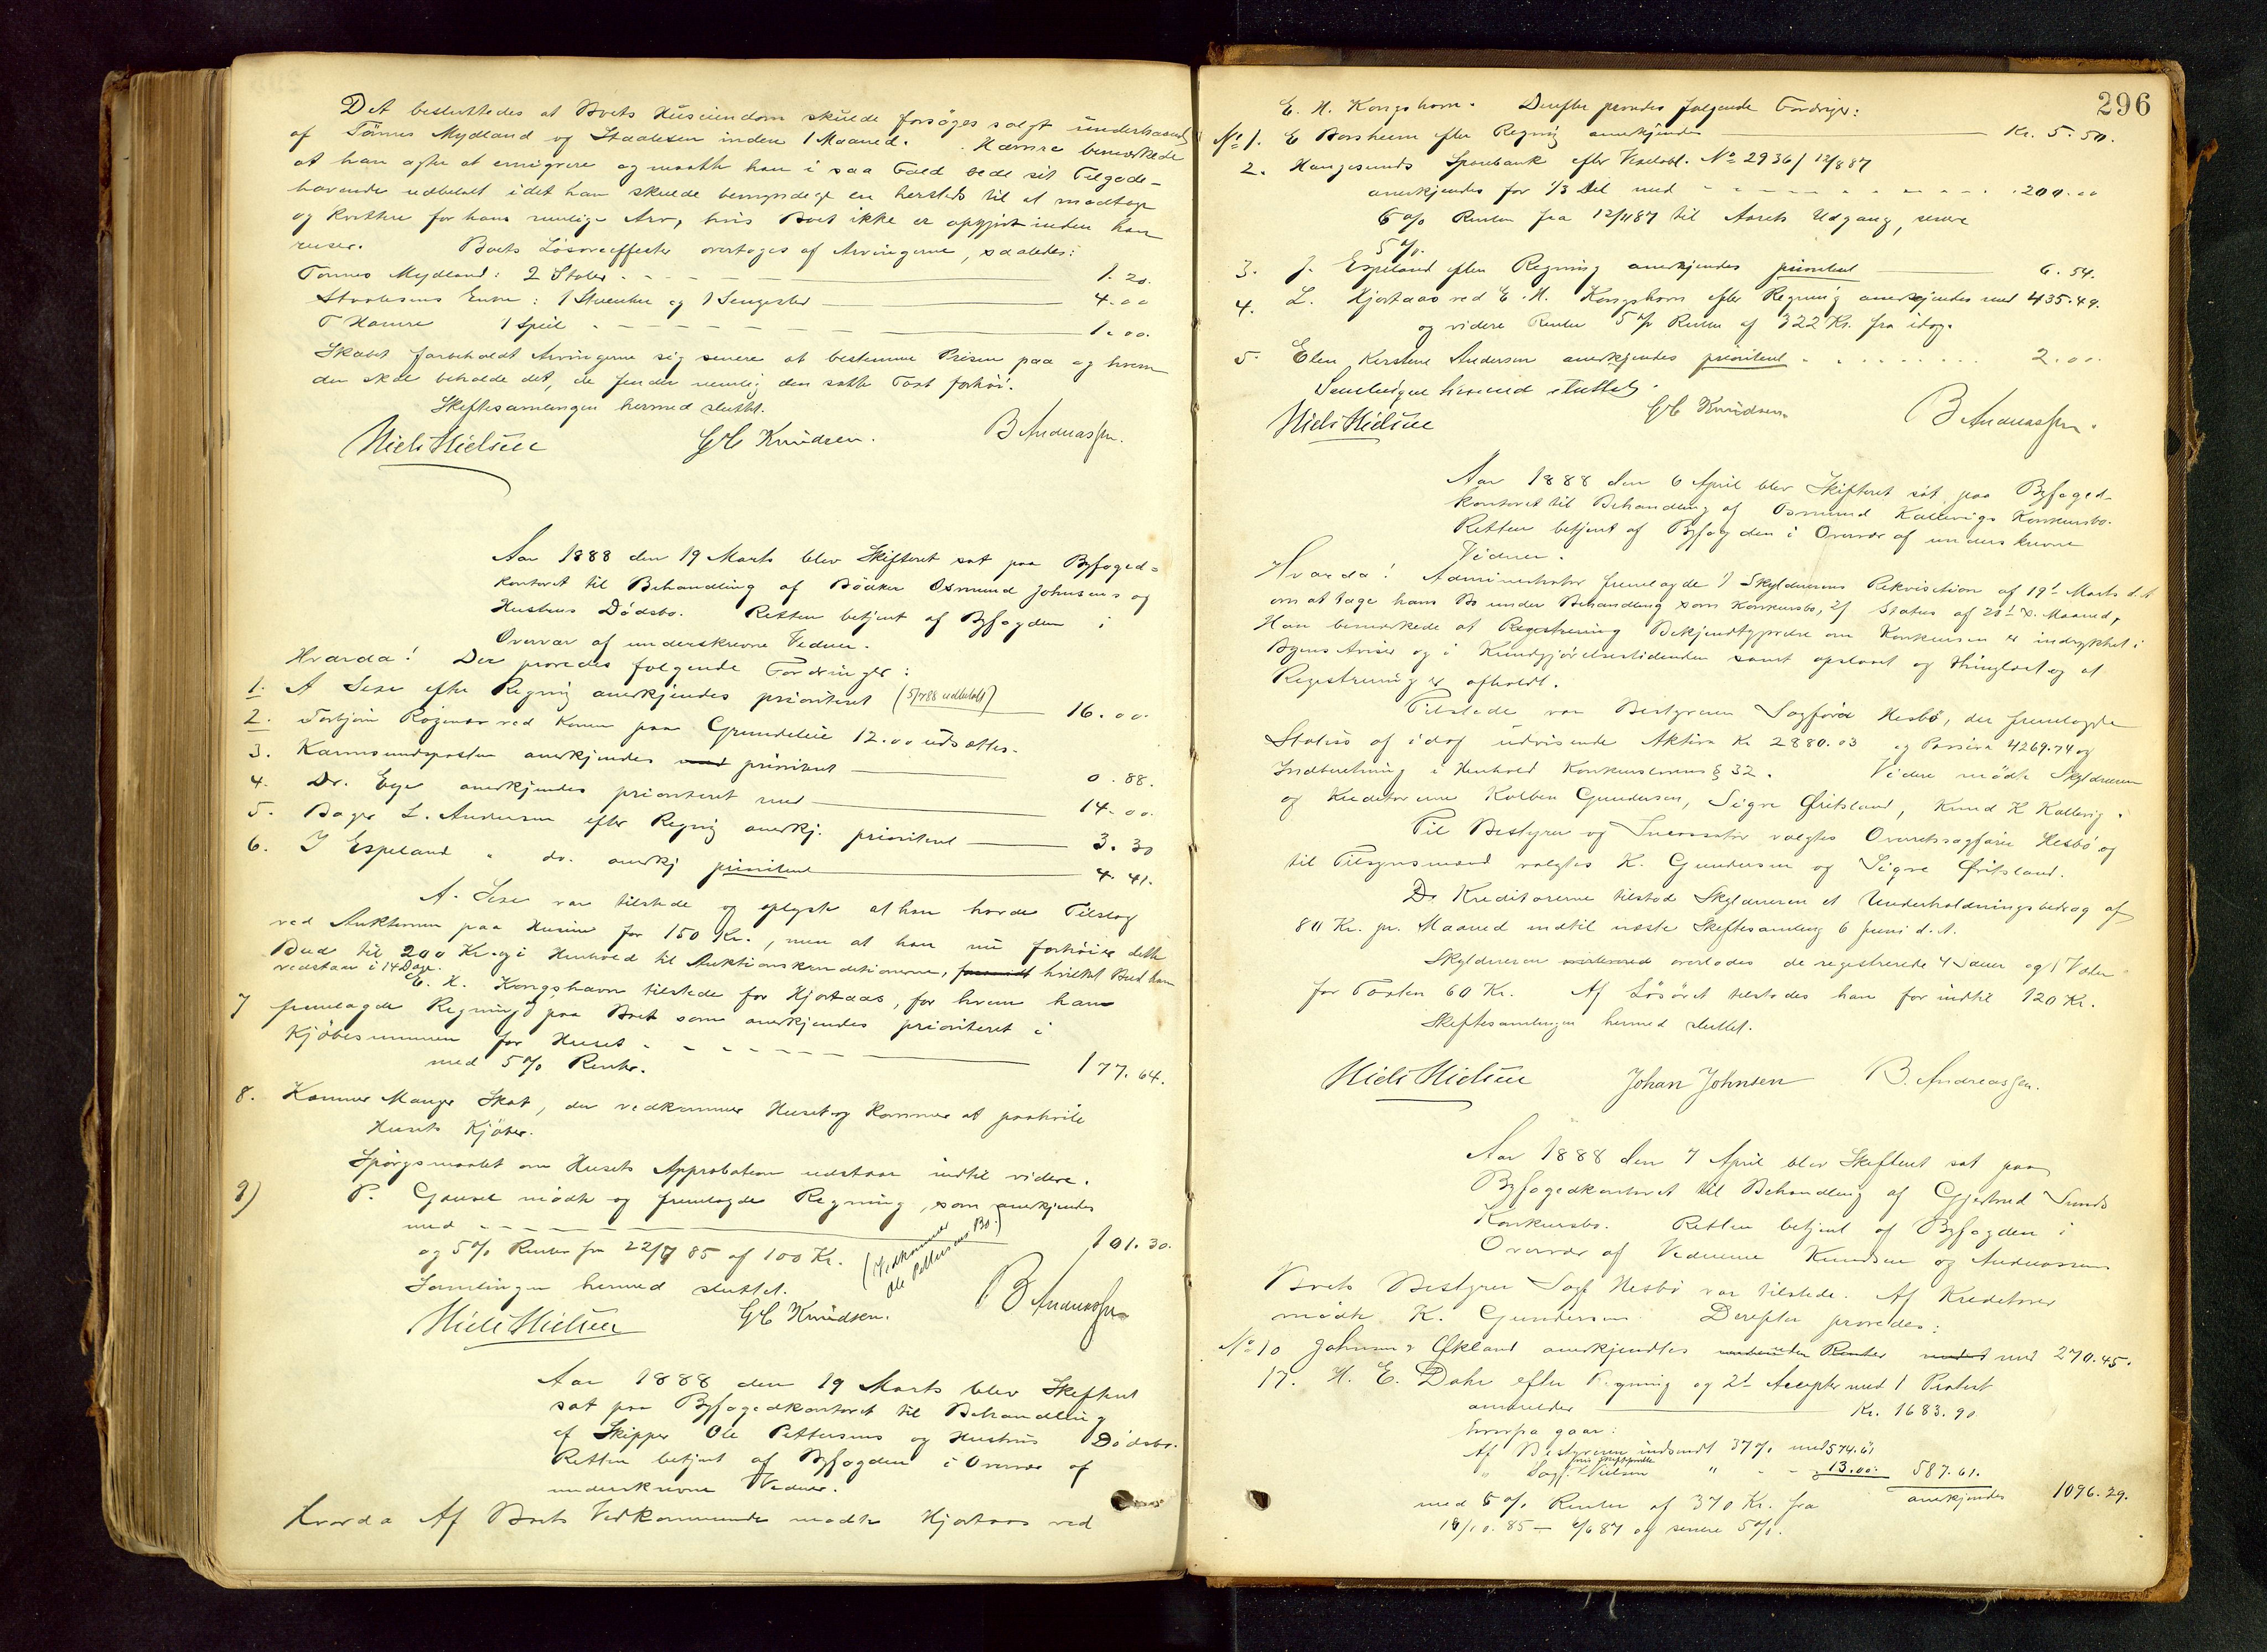 Det besluttedes at Boets Huseiendom skulde forsøges solgt underhaanden
af Tønnes Mydland og Staalesen inden 1 Maaned. Hamre bemærkede
at han agter at emigrere og maatte han i saa Fald bede sit Tilgode-
havende udbetalt idet han skulde bemyndige en hersteds til at modtage
og kvittere for hans rimelige Arv, hvis Boet ikke er opgjort inden han
reiser. Boets Løsøreeffecter overtages af Arvingerne, saaledes:
Tønnes Mydland: 2 Stoler 1.20.
Staalesens Enke: 1 Stueuhr og 1 Sengested 4.00
T Hamre 1 Speil 1.00.
Skabet forbeholdt Arvingerne sig senere at bestemme Prisen paa og hvem
der skal beholde det, de finder nemlig den satte Taxt forhøi.
Skiftesamlingen hermed sluttet.
Niels Nielsen C Knudsen. B Andreassen.
Aar 1888 den 19 Marts blev Skifteret sat paa Byfoged-
kontoret til Behandling af Bødker Osmund Johnsens og
Hustrus Dødsbo. Retten betjent af Byfogden i
Overvær af underskrevne Vidner.
Hvorda! Der prøvedes følgende Fordringer:
1. A Sexe efter Regning anerkjendes prioriteret (5/788 udbetalt) 16.00.
2. Torbjørn Røgenæs ved Konen paa Grundeleie 12.00 udsættes.
3. Karmsundsposten anerkjendes prioriteret 0.88.
4. Dr. Ege anerkjendes prioriteret med 14.00.
5. Bager L. Andersen efter Regnig anerkj. prioriteret 3.30
6. J Espeland " do. anerkj prioriteret 4.41.
A. Sexe var tilstede og oplyste at han havde Tilslag
ved Auktionen paa Husene for 150 Kr., men at han nu forhøier dette
Bud til 200 Kr. og i Henhold til Auktionskonditionerne, hvilket Bud han
vedstaar i 14 Dage.
E. H. Kongshavn tilstede for Hjortaas, for hvem han
7 fremlagde Regning paa Boet som anerkjendes prioriteret i
Kjøbesummen for Huset 177.64.
med 5% Renter.
8. Kommer Mange Skat, der vedkommer Huset og kommer at paahvile
Husets Kjøber.
Spørgsmaalet om Husets Approbation udstaar indtil videre.
9) P. Gausel mødte og fremlagde Regning, som anerkjendes
med 101.30.
og 5% Renter fra 22/7 85 af 100 Kr. (Vedkommer
Ole Pettersens Bo.)
Samlingen hermed sluttet.
Niels Nielsen C Knudsen. B Andreassen
Aar 1888 den 19 Marts blev Skifteret
sat paa Byfogedkontoret til Behandling
af Skipper Ole Pettersens og Hustrus Dødsbo.
Retten betjent af Byfogden i Overvær af
underskrevne Vidner.
Hvorda Af Boets Vedkommende mødte Hjortaas ved
296
E. H. Kongshavn. Derefter prøvedes følgende Fordringer:
No 1. E Borsheim efter Regnig anerkjendes Kr. 5.50.
2. Haugesunds Sparebank efter Vexelobl. No 2936/ 12/887
anerkjendes for 1/3 Del med 200.00
6% Renter fra 12/1187 til Aarets Udgang, senere
5%.
3. J. Espeland efter Regning anerkjendes prioriteret 6.54.
4. L. Hjortaas ved E. H. Kongshavn efter Regning anerkjendes med 435.49.
og videre Renter 5% Renter af 322 Kr. fra idag.
5. Elen Kirstine Andersen anerkjendes prioriteret 2.00.
Samlingen hermed sluttet.
Niels Nielsen C Knudsen. B Andreassen.
Aar 1888 den 6 April blev Skifteret sat paa Byfoged-
kontoret til Behandling af Osmund Kallevigs Konkursbo.
Retten betjent af Byfogden i Overvær af underskrevne
Vidner.
Hvorda! Administrator fremlagde 1/ Skyldnerens Rekvisition af 19de Marts d.A
om at tage hans Bo under Behandling som Konkursbo, 2/ Status af d. Maaned,
Han bemærkede at Bekjendtgjørelse om Konkursen er indrykket i
Byens Aviser og i Kundgjørelsestidenden samt opslaaet og thinglæst og at
Registrering er afholdt.
Tilstede var Bestyreren Sagfører Hesbø, der fremlagde
Status af idag udvisende Aktiva Kr 2880.03 og Passiva 4269.74 og
Indberetning i Henhold Konkurslovens § 32. Videre mødte Skyldneren
og Kreditorerne Kolbein Gundersen, Sigve Øritsland, Knud K Kallevig.
Til Bestyrer og Incassator valgtes Overretssagfører Hesbø og
til Tilsynsmænd valgtes K. Gundersen og Sigve Øritsland.
De Kreditorerne tilstod Skyldneren et Underholdningsbidrag af
80 Kr. pr. Maaned indtil næste Skiftesamling 6 Juni d.A.
Skyldneren overlodes de registrerede 4 Sauer og 1 Væder
for Taxten 60 Kr. Af Løsøret tilstodes han for indtil 120 Kr.
Skiftesamlingen hermed sluttet.
Niels Nielsen Johan Johnsen B. Andreassen.
Aar 1888 den 7 April blev Skifteret sat paa
Byfogedkontoret til Behandling af Gjertrud Sunds
Konkursbo. Retten betjent af Byfogden i
Overvær af Vidnerne Knudsen og Andreassen
Boets Bestyrer Sagf Hesbø var tilstede. Af Kreditorer
mødte K. Gundersen. Derefter prøvedes:
No 10 Johnsen & Økland anerkjendtes med 270.45.
17. H. E. Dahr efter Regning og 2de Accepter med 1 Protest
anmelder Kr. 1683.90
hvorpaa gaar:
Af Bestyreren indsendt 37% med 574.61
" Sagf. Nielsen " 13.00. 587.61.
anerkjendes 1096.29.
med 6% Renter af 370 Kr. fra
16/10.85 – 6/687 og senere 5%.